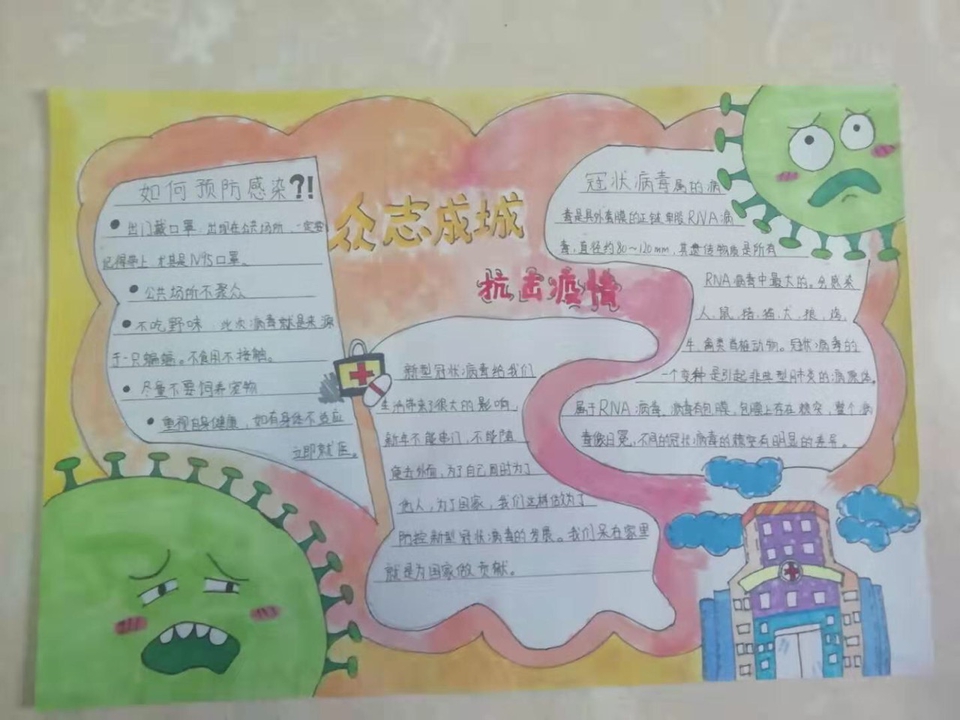 众志成城
抗击疫情
如何预防感染?!
●出门戴口罩,出现在公共场所,一定要
记得带上,尤其是N95口罩。
●公共场所不聚众
●不吃野味,此次病毒就是来源
于一只蝙蝠。不食用不接触。
●尽量不要饲养宠物
●重视自身健康,如有身体不适应
立即就医。
新型冠状病毒给我们
生活带来了很大的影响,
新年不能串门,不能随
便去外面,为了自己同时为了
他人,为了国家,我们这样做为了
防控新型冠状病毒的发展。我们呆在家里
就是为国家做贡献。
冠状病毒属的病
毒是具外套膜的正链单股RNA病
毒,直径约80~120nm,其遗传物质是所有
RNA病毒中最大的。只感染
人、鼠、猪、猫、犬、狼、鸡、
牛、禽类脊椎动物。冠状病毒的
一个变种是引起非典型肺炎的病原体。
属于RNA病毒。病毒有包膜,包膜上存在棘突,整个病
毒像日冕,不同的冠状病毒的棘突有明显的差异。